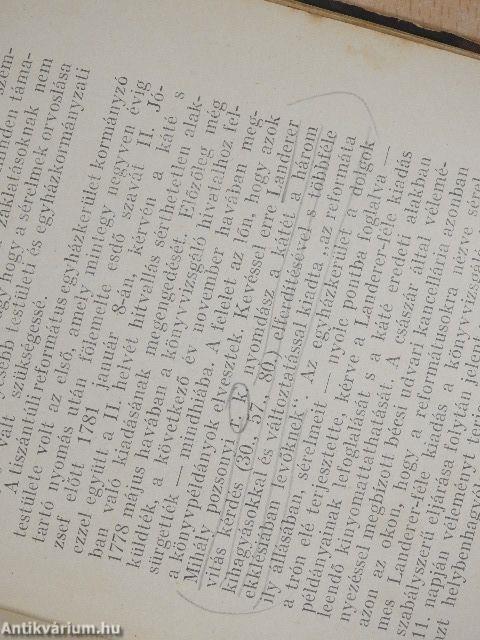 szem-
zaklatásoknak minden táma-
hogy a sérelmek orvoslása
vált testületi és egyházkormányzati
szükségessé.
A tiszántúli református egyházkerület kormányzó
testülete volt az első, amely mintegy negyven évig
tartó nyomás után fölemelte esdő szavát II. Jó-
zsef előtt 1781 január 8-án, kérvén a káté s
ezzel együtt a II. helvét hitvallás sérthetetlen alak-
ban való kiadásának megengedését. Előzőleg még
1778 május havában a könyvvizsgáló hivatalhoz fel-
küldték, a következő év november havában meg-
sürgették — mindhiába. A felelet az lőn, hogy azok
a könyvpéldányok elvesztek. Kevéssel erre Landerer
Mihály pozsonyi nyomdász a kátét a három
vitás kérdés (30., 57., 80.) elferdítésével s többféle
kihagyásokkal és változtatással kiadta, „az reformáta
ekklésiában levőknek". Az egyházkerület a dolgok
ily állásában, sérelmeit — nyolc pontba foglalva —
a trón elé terjesztette, kérve a Landerer-féle kiadás
példányainak lefoglalását s a káté eredeti alakban
leendő kinyomattathatását. A császár által vélemé-
nyezéssel megbízott bécsi udvari kancellária azonban
azon az okon, hogy a reformátusokra nézve sérel-
mes Landerer-féle kiadás a könyvvizsgáló
szabályszerű eljárása folytán jelent
11. napján véleményt
zt helybenhagyó
Antikvárium.hu